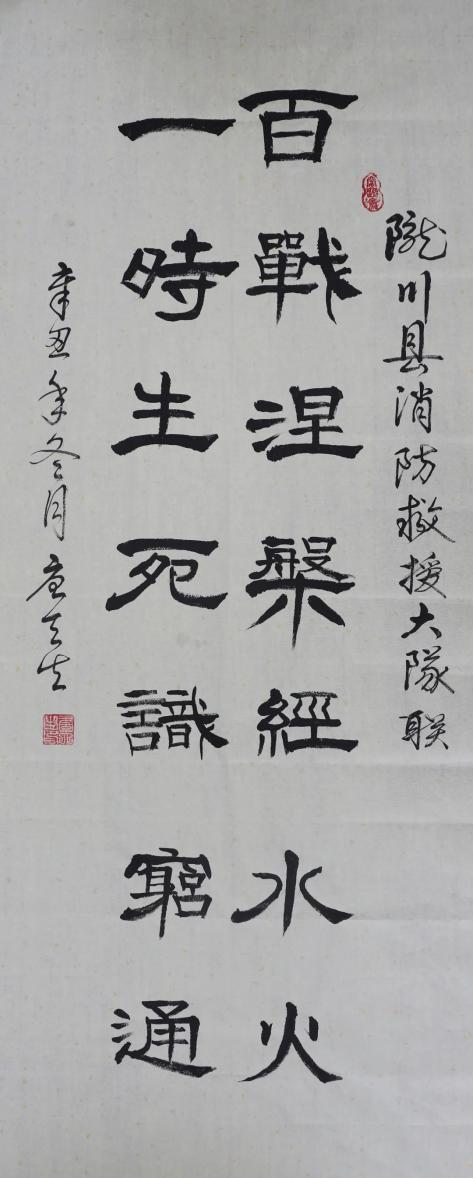 陇川县消防救援大隊联
百戰涅槃經水火
一時生死識窮通
辛丑年冬月